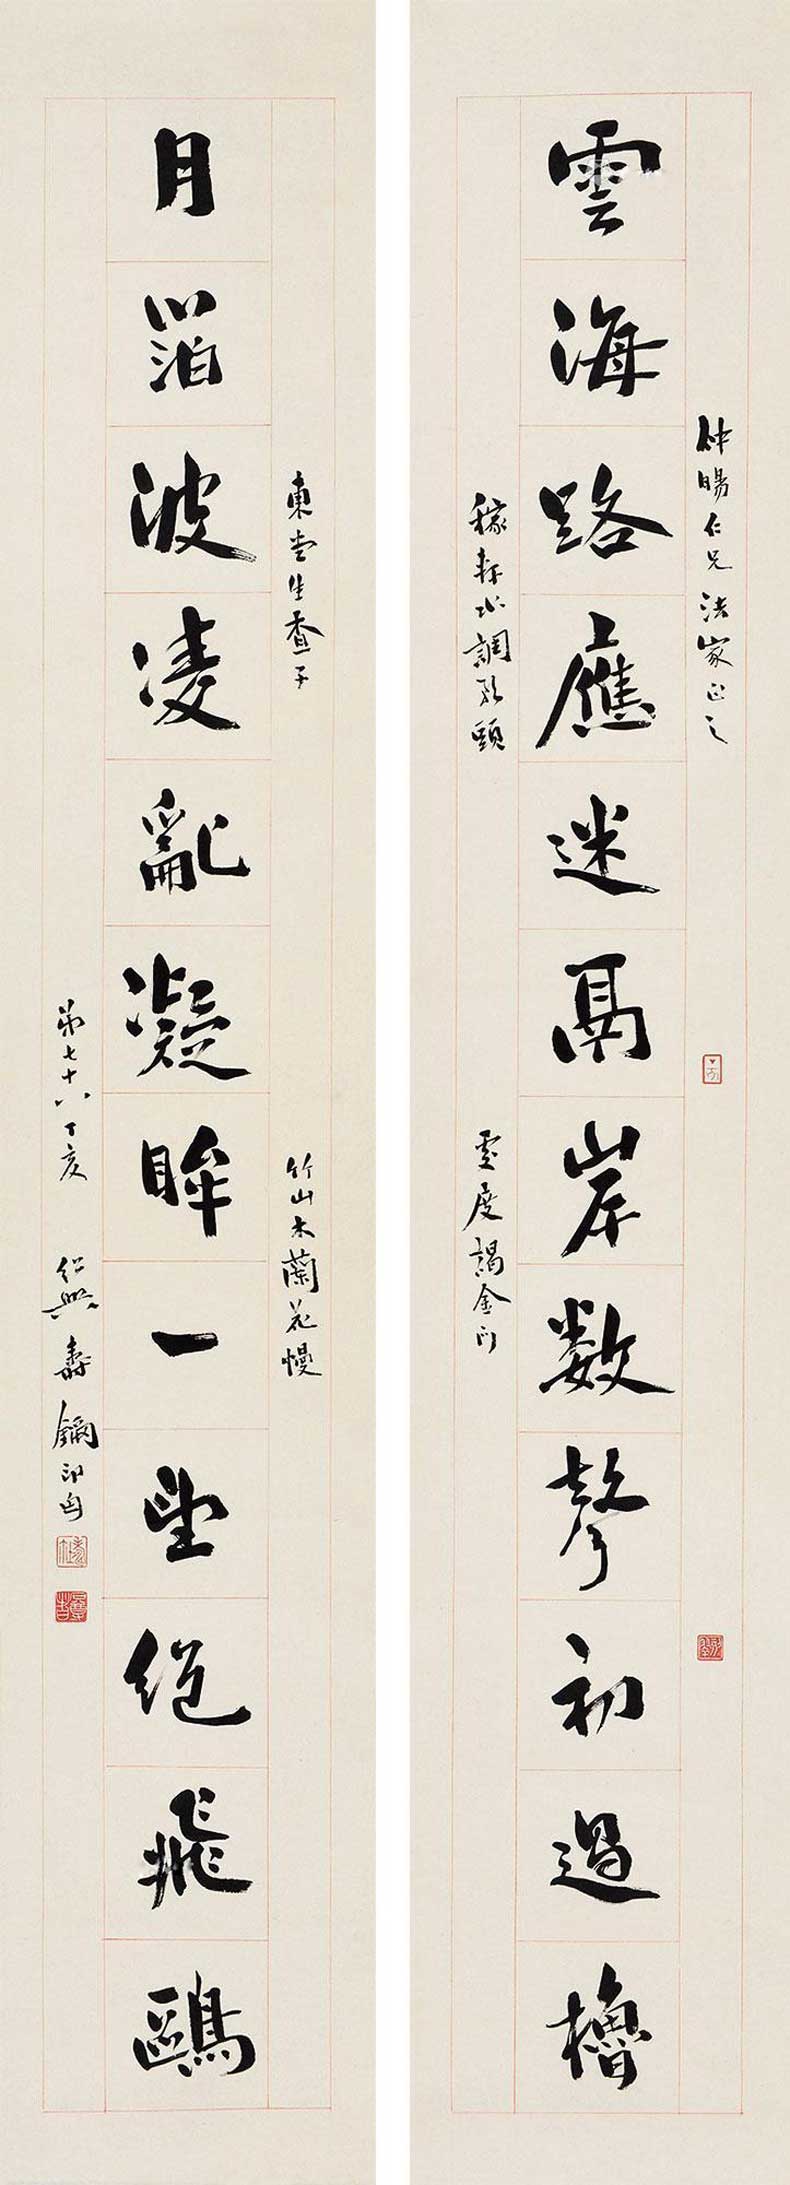 仲暘仁兄法家正之
雲海路應迷鬲岸数聲初過櫓
稼軒水調歌頭
度謁金門
東堂生查子
竹山木蘭花慢
月箔波凌亂凝眸一望絕飛鷗
弟七十八丁亥 紹興壽鑈印匄